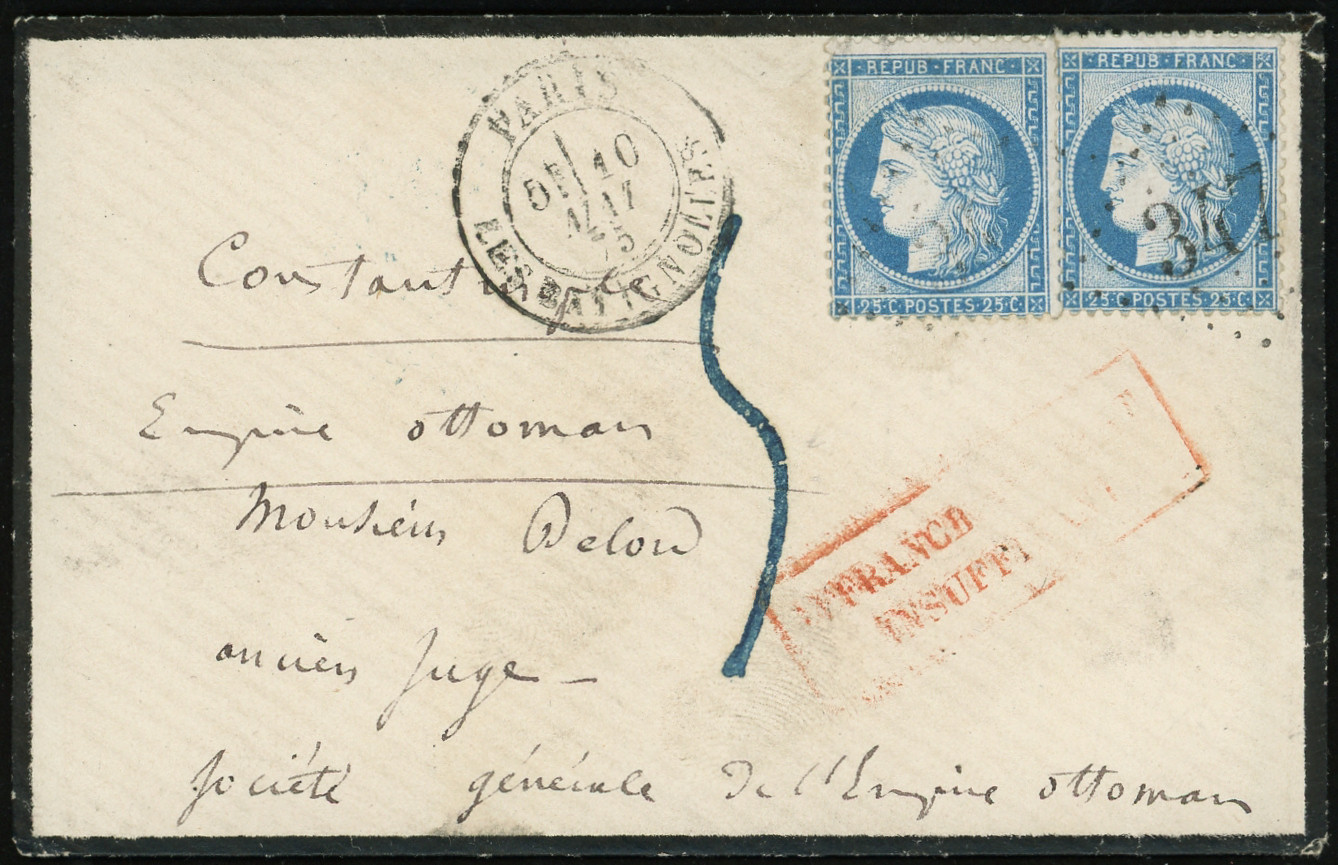 PARIS
5E 10
MAI
75
LES BATIGNOLLES
REPUB FRANC
25·C POSTES 25·C
REPUB FRANC
25·C POSTES 25·C
347
Constantinople
Empire ottoman
Monsieur Delord
ancien Juge
Société générale de l'Empire ottoman
AFFRANCH
INSUFFI